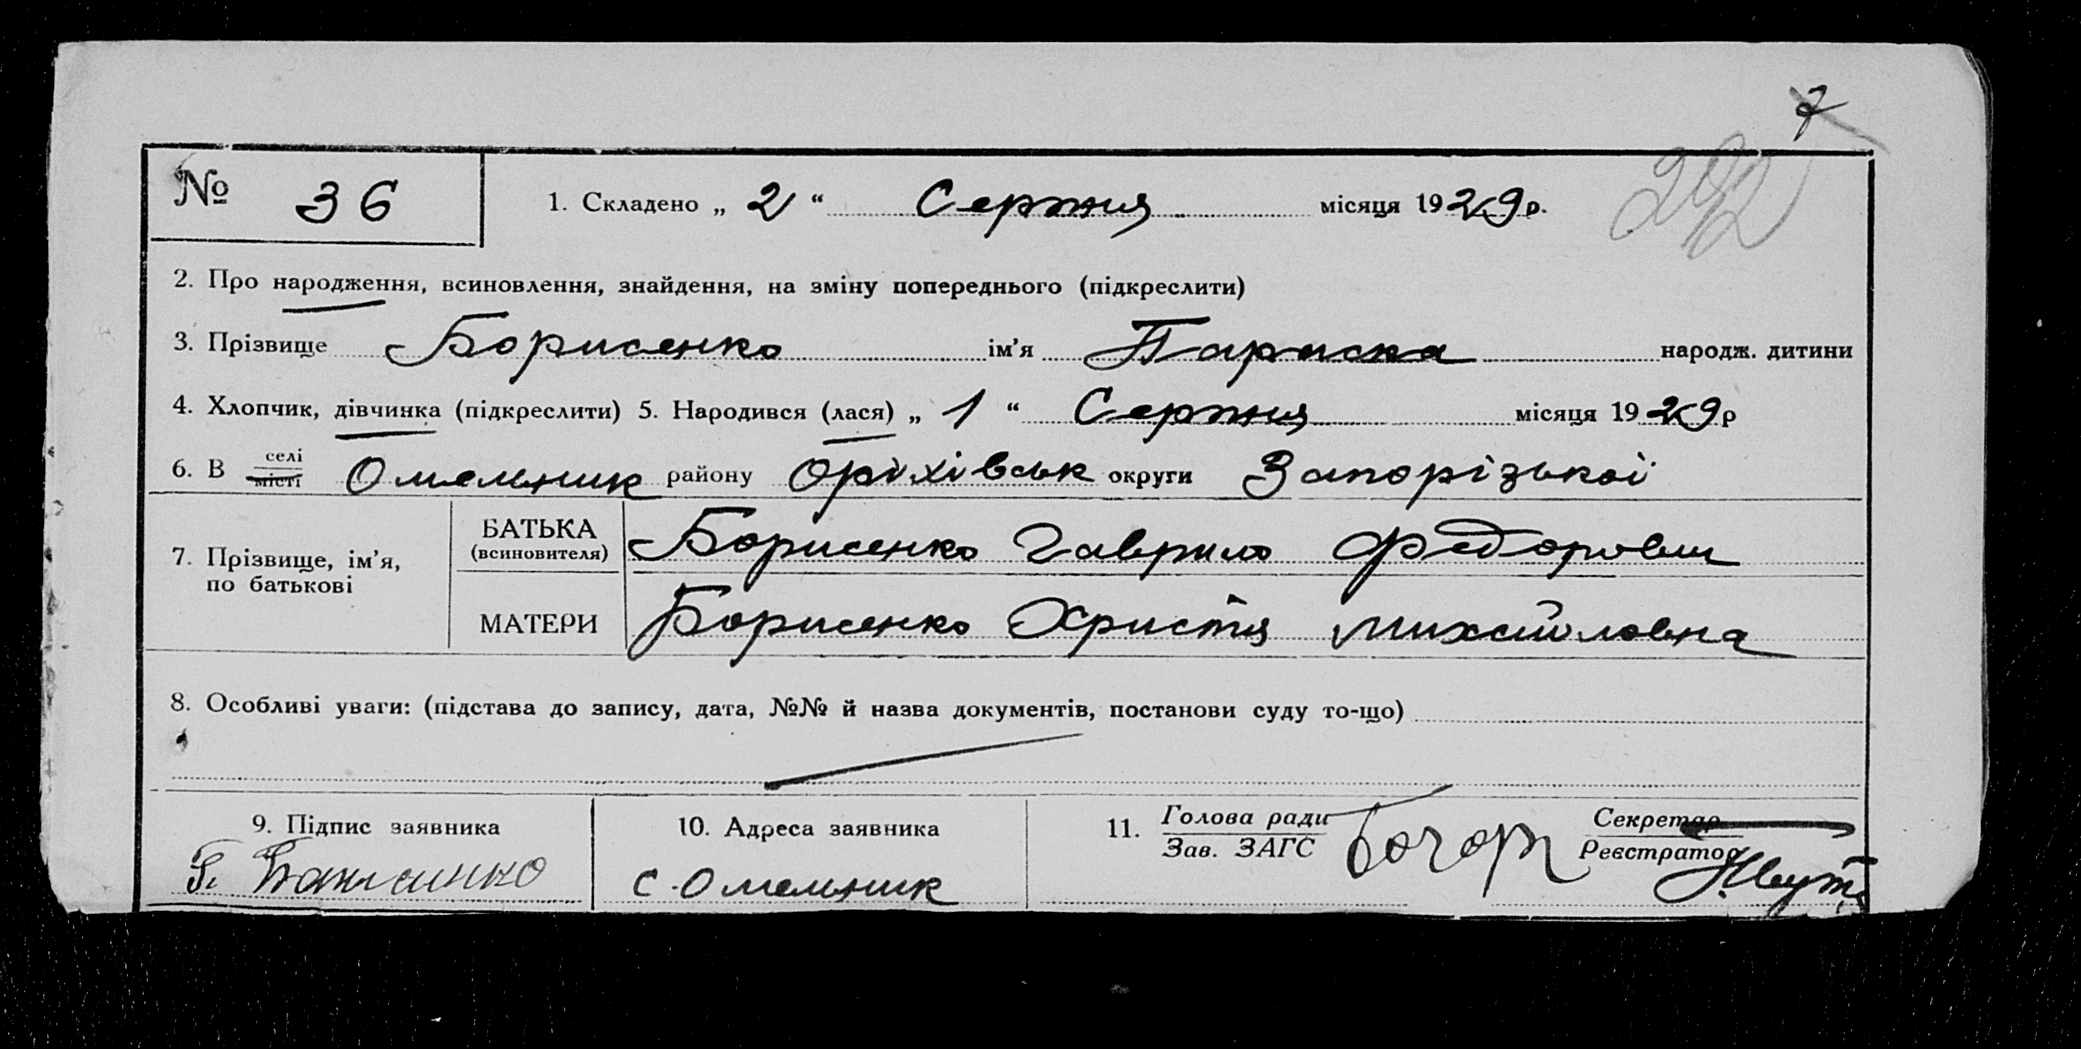 7
292
№ 36 1. Складено „ 2 “ Серпня місяця 1929 р.
2. Про народження, всиновлення, знайдення, на зміну попереднього (підкреслити)
3. Прізвище Борисенко ім’я Параска народж. дитини
4. Хлопчик, дівчинка (підкреслити) 5. Народився (лася) „ 1 “ Серпня місяця 1929 р
6. В селі місті Омельник району Оріхівськ округи Запорізької
7. Прізвище, ім’я, по батькові
БАТЬКА (всиновителя) Борисенко Гаврило Федорович
МАТЕРИ Борисенко Христя Михайловна
8. Особливі уваги: (підстава до запису, дата, №№ й назва документів, постанови суду то-що)
9. Підпис заявника 10. Адреса заявника 11. Голова ради Зав. ЗАГС Секретар Реєстратор
с. Омельник